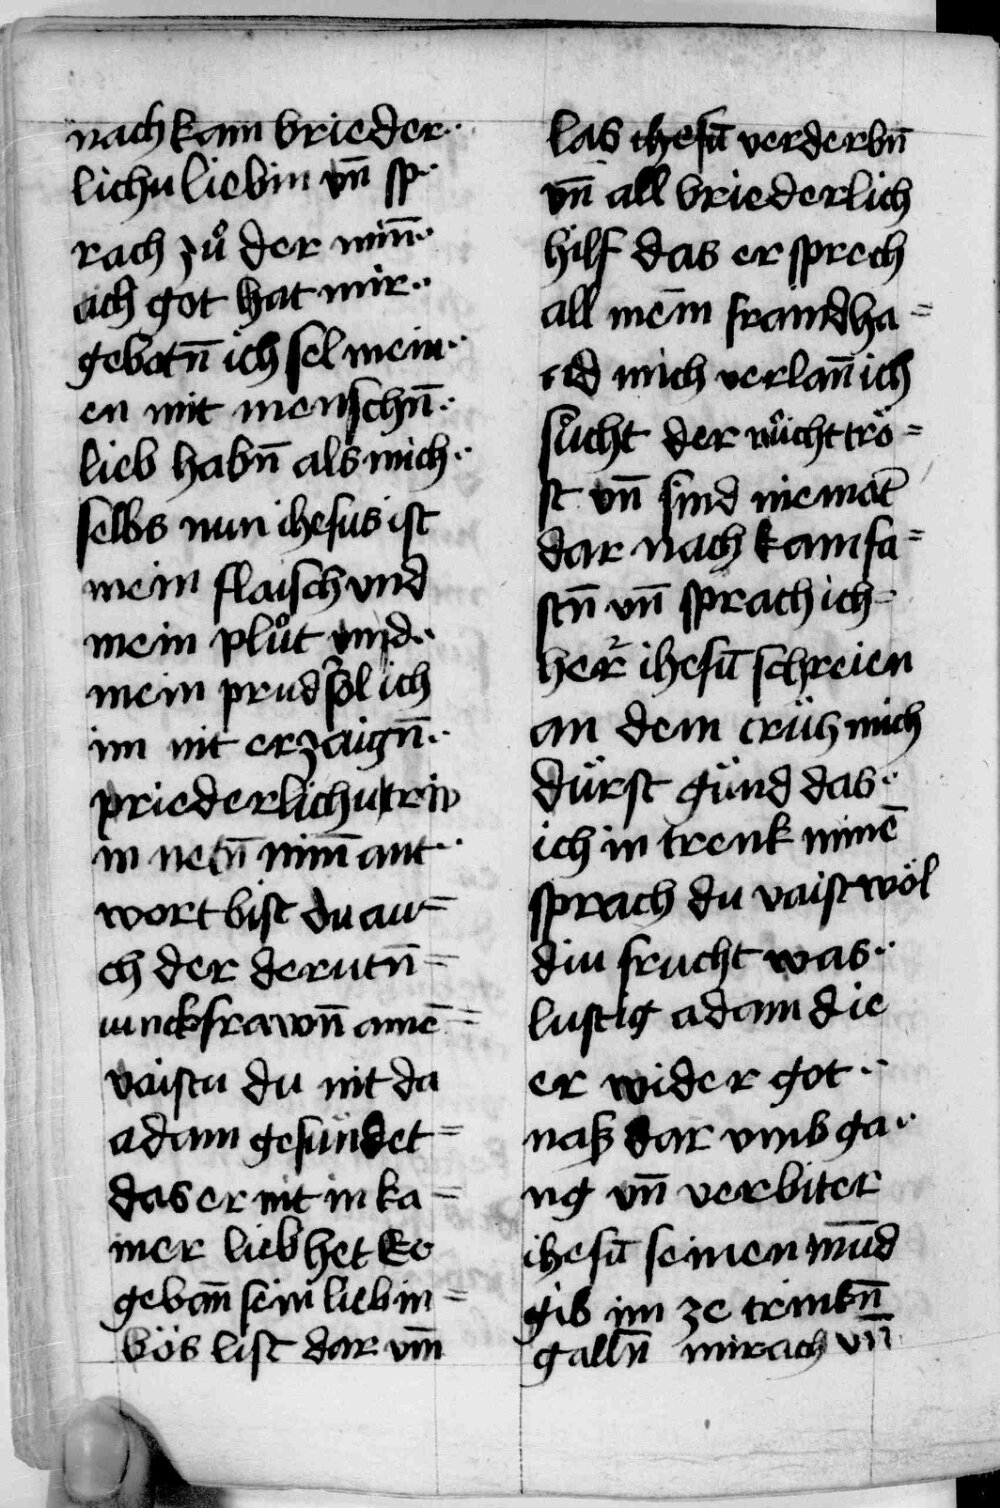 nach kam brieder
lichu liebin vn̄ sp
rach zů der min̄
ach got hat mir
gebotn̄ ich sol mein
en mit menschn̄
lieb habn̄ als mich
selbs nun ihesus ist
mein flaisch vnd
mein plůt vnd
mein prud sol ich
im nit erzaign̄
priederlichu triw
in netn̄ mim̄ ant
wort bist du au=
ch der derutn̄=
iunckfrawn̄ amē=
vaistu du nit da
adam gesündet=
das er nit in ka=
iner lieb het
gebam̄ sein liebin=
bös list dar vm̄
las ihesū verderbn̄
vn̄ all briederlich
hilf das er sprech
all mein fraind ha=
nd mich verlan̄ ich
sůcht der můcht trö=
st vn̄ find niemāt
dar nach kam fa=
stn̄ vn̄ sprach ich=
her ihesū schreien
an dem crütz mich
dürst günd das
ich in trenk minē
sprach du vaist wöl
diu frucht was
lustig adam die
er wider got
naß dar vmb ga
ng vn̄ verbiter
ihesū seinen mūd
gib im ze trinkn̄
galln̄ mirach vn̄